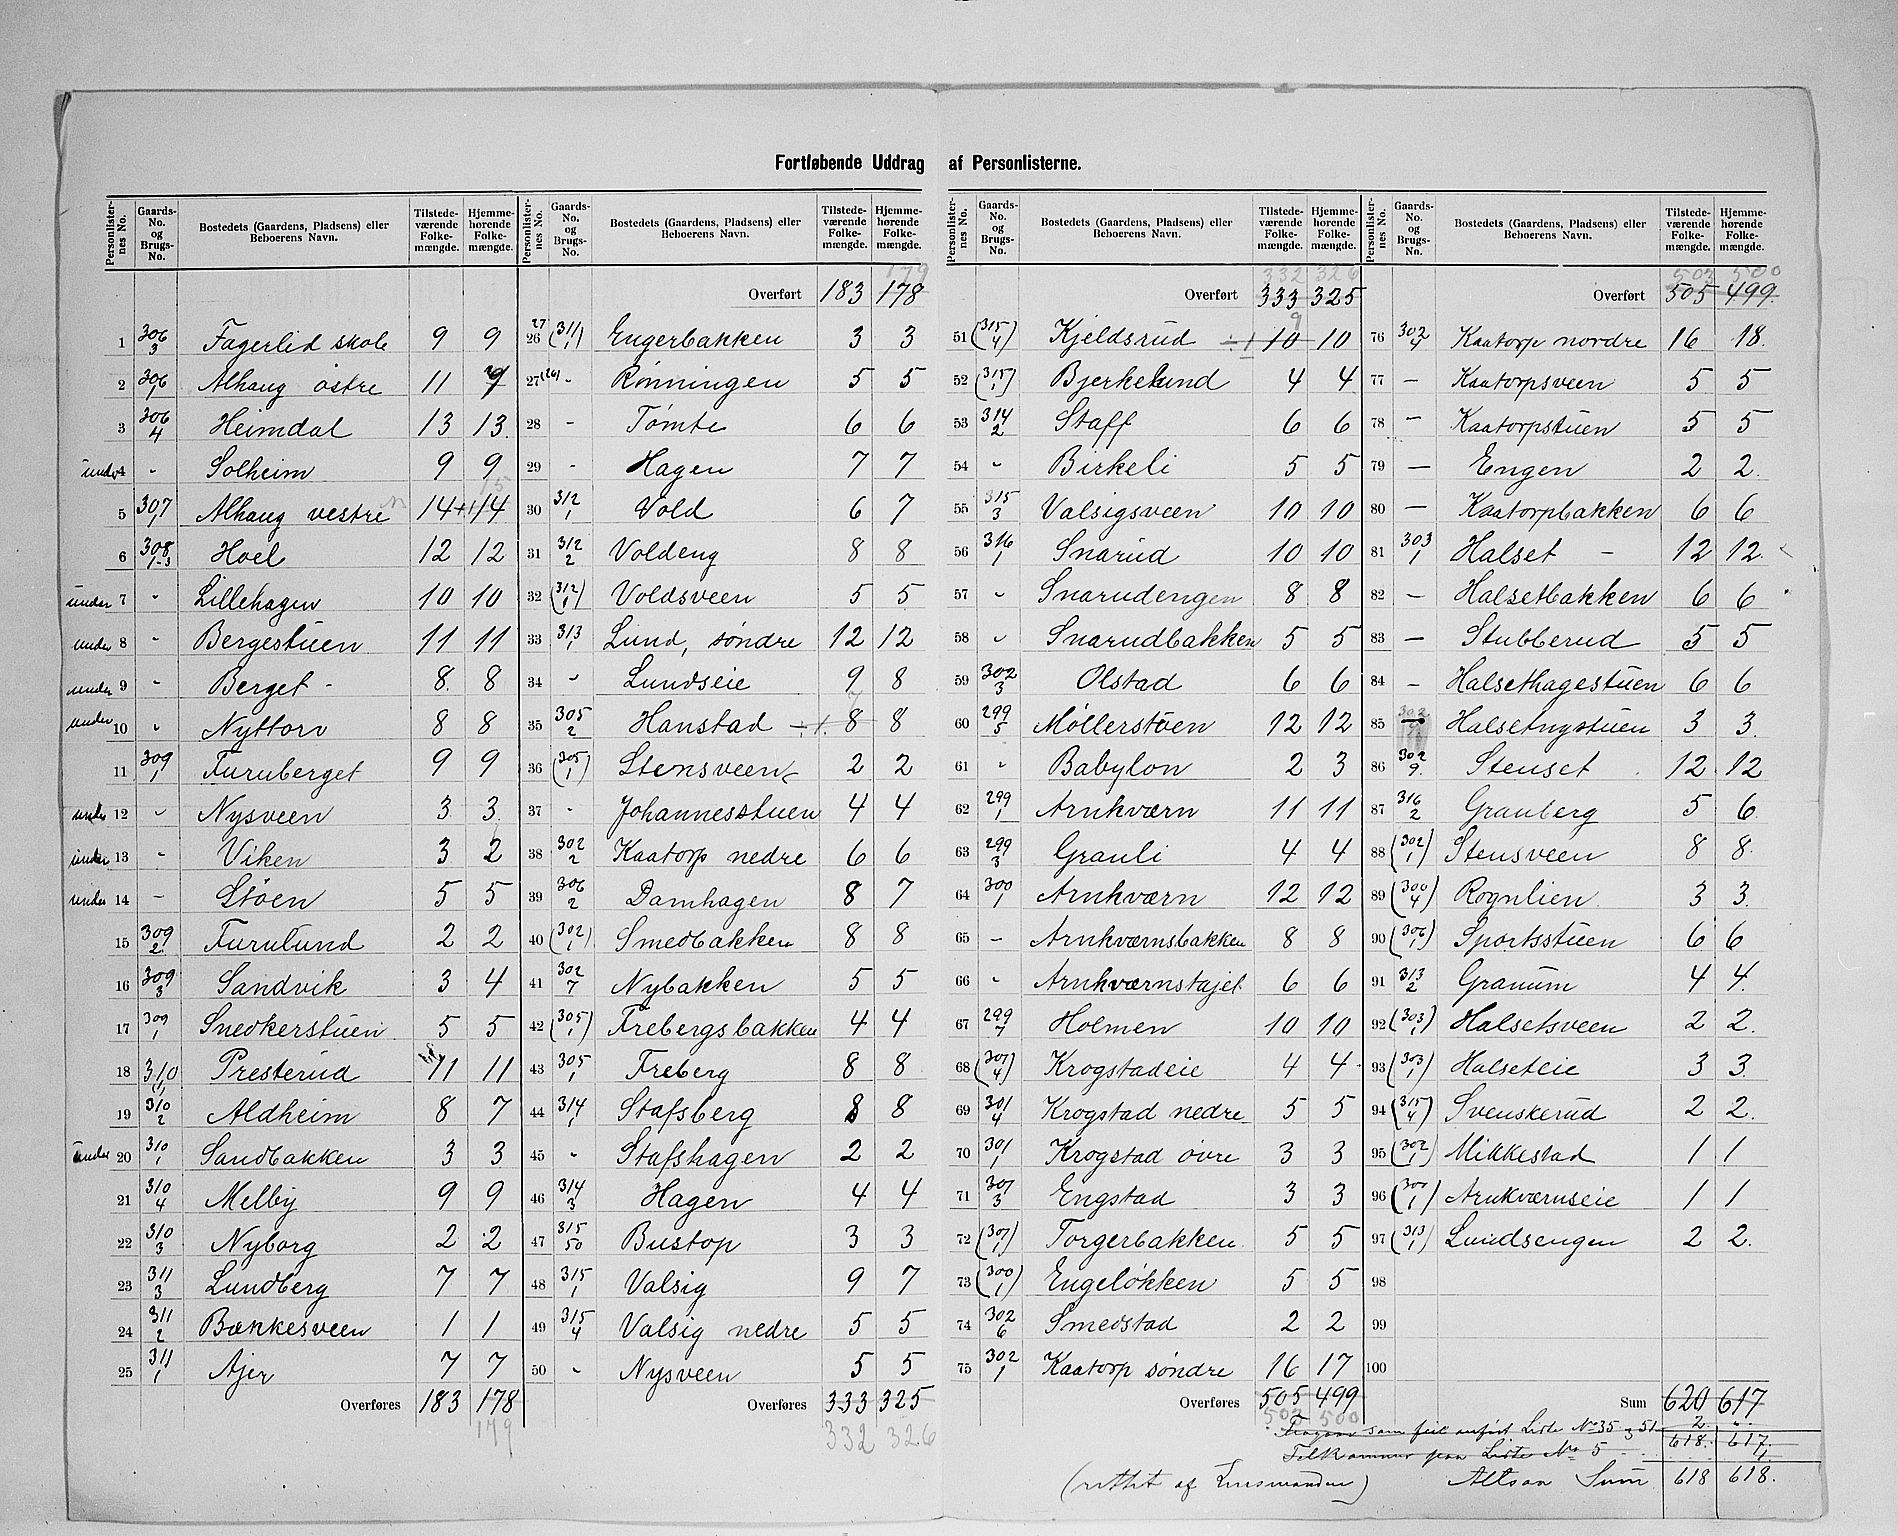 Fortløbende Uddrag af Personlisterne.
Personlister-nes No. | Gaards-No. og Brugs-No. | Bostedets (Gaardens, Pladsens) eller Beboerens Navn. | Tilstede-værende Folke-mængde. | Hjemme-hørende Folke-mængde.
1 306/3 Fagerlid skole 9 9
2 306/1 Alhaug östre 11 9
3 306/4 Heimdal 13 13.
under 4 " Solheim 9 9
5 307/1 Alhaug vestre 14 +1 14 15
6 308/1-3 Hoel 12 12
under 7 " Lillehagen 10 10
under 8 " Bergestuen 11 11
under 9 " Berget - 8 8
under 10 " Nyttorv 8 8
11 309/1 Furuberget 9 9
under 12 " Nysveen 3 3
under 13 " Viken 3 2
under 14 - Stöen 5 5
15 309/2 Furulund 2 2
16 309/3 Sandvik 3 4
17 309/1 Snedkerstuen 5 5
18 310/1 Presterud 11 11
19 310/2 Aldheim 8 7
under 20 310/1 Sandbakken 3 3
21 310/4 Melby 9 9
22 310/3 Nyborg 2 2
23 311/3 Lundberg 7 7
24 311/2 Bækkesveen 1 1
25 311/1 Ajer 7 7
Overføres 183 178
179
Personlister-nes No. | Gaards-No. og Brugs-No. | Bostedets (Gaardens, Pladsens) eller Beboerens Navn. | Tilstede-værende Folke-mængde. | Hjemme-hørende Folke-mængde.
179
Overført 183 178
27 26 (311/1) Engerbakken 3 3
27 (26) - Rønningen 5 5
28 - Tømte 6 6
29 - Hagen 7 7
30 312/1 Vold 6 7
31 312/2 Voldeng 8 8
32 (312/1) Voldsveen 5 5
33 313/1 Lund, søndre 12 12
34 " Lundseie 9 8
35 305/2 Hanstad ÷1. 8 7 8
36 (305/1) Stensveen 2 2
37 - Johannesstuen 4 4
38 302/2 Kaatorp nedre 6 6
39 306/2 Damhagen 8 7
40 (302/1) Smedbakken 8 8
41 302/7 Nybakken 5 5
42 (305/1) Frebergsbakken 4 4
43 305/1 Freberg 8 8
44 314/1 Stafsberg 8 8
45 " Stafshagen 2 2
46 314/3 Hagen 4 4
47 315/50 Bustop 3 3
48 315/1 Valsig 9 7
49 315/4 Valsig nedre 5 5
50 " Nysveen 5 5
Overføres 333 325
332 326
Personlister-nes No. | Gaards-No. og Brugs-No. | Bostedets (Gaardens, Pladsens) eller Beboerens Navn. | Tilstede-værende Folke-mængde. | Hjemme-hørende Folke-mængde.
332 326
Overført 333 325
51 (315/4) Kjeldsrud ÷1 10 9 10
52 (315/1) Bjerkelund 4 4
53 314/2 Staff 6 6
54 " Birkeli 5 5
55 315/3 Valsigsveen 10 10
56 316/1 Snarud 10 10
57 " Snarudengen 8 8
58 " Snarudbakken 5 5
59 302/3 Olstad 6 6
60 299/5 Møllerstöen 12 12
61 " Babylon 2 3
62 299/1 Arnkværn 11 11
63 299/3 Granli 4 4
64 300/1 Arnkværn 12 12
65 - Arnkværnsbakken 8 8
66 " Arnkværnstajet 6 6
67 299/7 Holmen 10 10
68 (301/4) Krogstadeie 4 4
69 301/4 Krogstad nedre 5 5
70 301/1 Krogstad övre 3 3
71 301/3 Engstad 3 3
72 (301/1) Torgerbakken 5 5
73 (300/1) Engeløkken 5 5
74 302/6 Smedstad 2 2
75 302/1 Kaatorp söndre 16 17
Overføres 505 499
503 500
Personlister-nes No. | Gaards-No. og Brugs-No. | Bostedets (Gaardens, Pladsens) eller Beboerens Navn. | Tilstede-værende Folke-mængde. | Hjemme-hørende Folke-mængde.
503 500
Overført 505 499.
76 302/4 Kaatorp nordre 16 18.
77 - Kaatorpsveen 5 5
78 - Kaatorpstuen 5 5
79 - Engen 2 2.
80 - Kaatorpbakken 6 6
81 303/1 Halset - 12 12.
82 - Halsetbakken 6 6
83 - Stubberud 5 5
84 - Halsethagestuen 6 6
85 Halsetnystuen 3 3.
86 302/9. Stenset 12 12
87 316/2 Granberg 5 6
88 (302/1) Stensveen 8 8
89 (300/4) Rognlien 3 3.
90 (306/1) Sportsstuen 6 6
91 313/2 Granum 4 4.
92 (303/1) Halsetsveen 2 2.
93 (303/1) Halseteie 3 3.
94 (315/4) Svenskerud 2 2.
95 (302/1) Mikkestad 1 1
96 (300/1) Arnkværnseie 1 1
97 (313/1) Lundsengen 2 2.
98
99
100
Sum 620 617
Fragaar som feil anført Liste No 35 & 51 2. "
618. 617.
Tilkommer paa Liste No 5 1
(rettet af Lensmanden) Altsaa Sum 618 618.